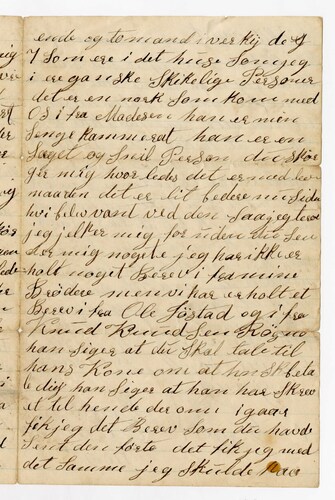 ende og to mand i verkij de 
7 som ere i det huse som jeg
i ere ganske skikelige Personer
det er en nork som kom med
Os i fra Madesen han er min
Senge kammerat han er en
Saget og Snil Person du skør
ger mig hvor ledes det er med
maaden det er lit bedere nu siden
hvi blev vant ved den saa jeg
jeg jelper mig for uden du Sen
der mig noget jeg har ikke er
holt noget Berev i fra mine
Brødere men vi har erholt et
Berev i fra Ole Søstad og i fra
Knud Knudsen
han siger at du skal tale til
hans Kone om at hun skl beta
le dig han Siger at han har Skrev
et til hende der om i gaar
fik jeg det Berev som du havde
Sent den førte det fik jeg med
det Samme jeg skulde